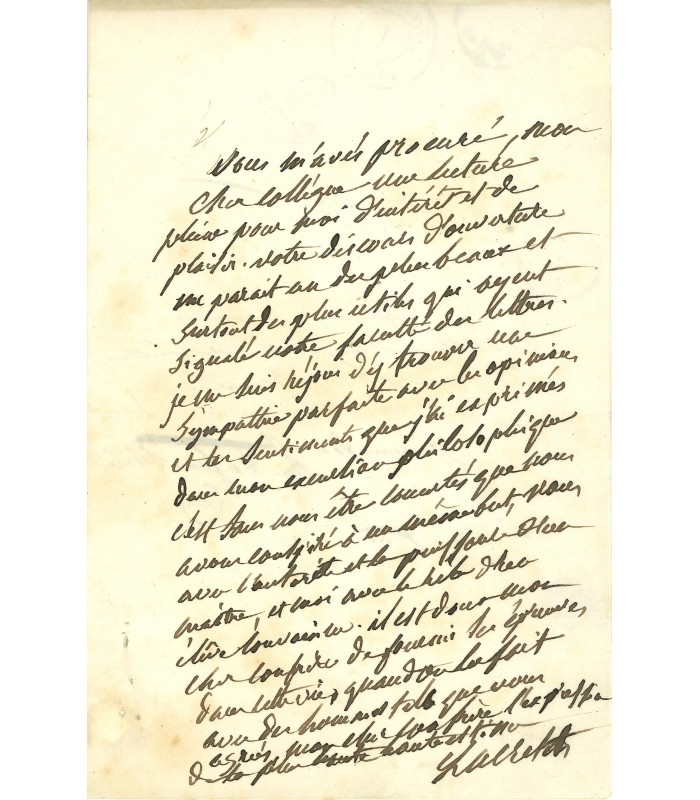 Vous m'avés procuré, mon
cher collègue une lecture
pleine pour moi d'intérêt et de
plaisir. votre discours d'ouverture
me parait un des plus beaux et
surtout des plus utiles qui ayent
signalé notre faculté des lettres.
je me suis réjoui d'y trouver une
sympathie parfaite avec les opinions
et les sentiments que j'ai exprimés
dans mon excursion philosophique
c'est sans nous être concertés que nous
avons conspiré à un même but, vous
avec l'autorité et la puissance d'un
maître, et moi avec le zèle d'un
élève convaincu. il est doux mon
cher confrère de fournir les épreuves
dans cette vie, quand on le fait
avec des hommes tels que vous
agréés, mon cher confrère l'expression
de la plus haute estime
Lacretelle